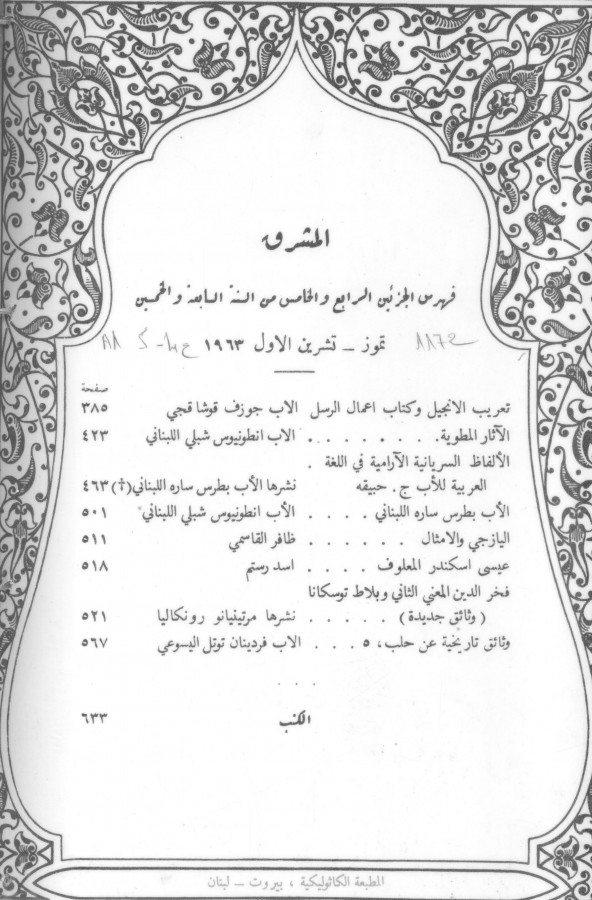 المشرق
فهرس الجزئين الرابع والخامس من السنة السابعة والخمسين
تموز – تشرين الاول ١٩٦٣
صفحة
تعريب الانجيل وكتاب اعمال الرسل الاب جوزف قوشاقجي ٣٨٥
الآثار المطوية . . . . . . . الاب انطونيوس شبلي اللبناني ٤٢٣
الألفاظ السريانية الآرامية في اللغة .
العربية للأب ج . حبيقه نشرها الأب بطرس ساره اللبناني (†) ٤٦٣
الأب بطرس ساره اللبناني . . . . الأب انطونيوس شبلي اللبناني ٥٠١
اليازجي والامثال . . . . . . ظافر القاسمي ٥١١
عيسى اسكندر المعلوف . . . . اسد رستم ٥١٨
فخر الدين المعني الثاني وبلاط توسكانا
( وثائق جديدة ) . . . . . نشرها مرتينيانو رونكاليا ٥٢١
وثائق تاريخية عن حلب، ٥ . . . الاب فردينان توتل اليسوعي ٥٦٧
. . .
الكتب ٦٣٣
المطبعة الكاثوليكية ، بيروت – لبنان